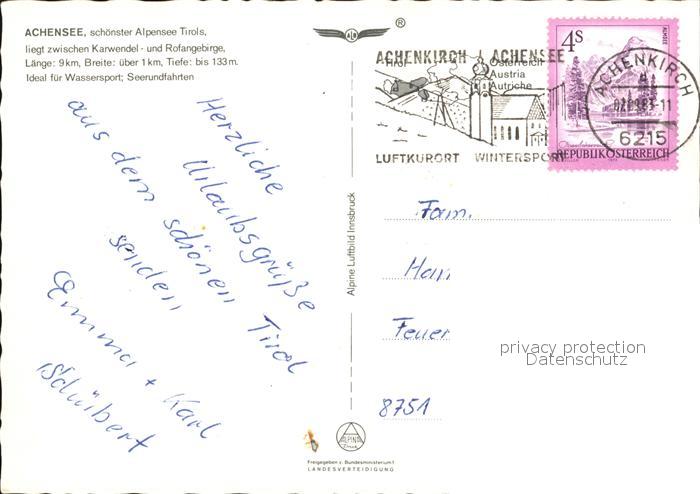 ACHENSEE, schönster Alpensee Tirols,
liegt zwischen Karwendel - und Rofangebirge,
Länge: 9 km, Breite: über 1 km, Tiefe: bis 133 m.
Ideal für Wassersport; Seerundfahrten
Herzliche
Urlaubsgrüße
aus dem schönen Tirol
senden
Emma + Karl
Schübert
Alpine Luftbild Innsbruck
®
ACHENKIRCH / ACHENSEE
Tirol
Österreich
Austria
Autriche
LUFTKURORT WINTERSPORT
4S
ALMSEE
REPUBLIK ÖSTERREICH
ACHENKIRCH
6215
Fam.
Han
Feuer
8751
privacy protection
Datenschutz
ALPIN
Freigegeben v. Bundesministerium f.
LANDESVERTEIDIGUNG